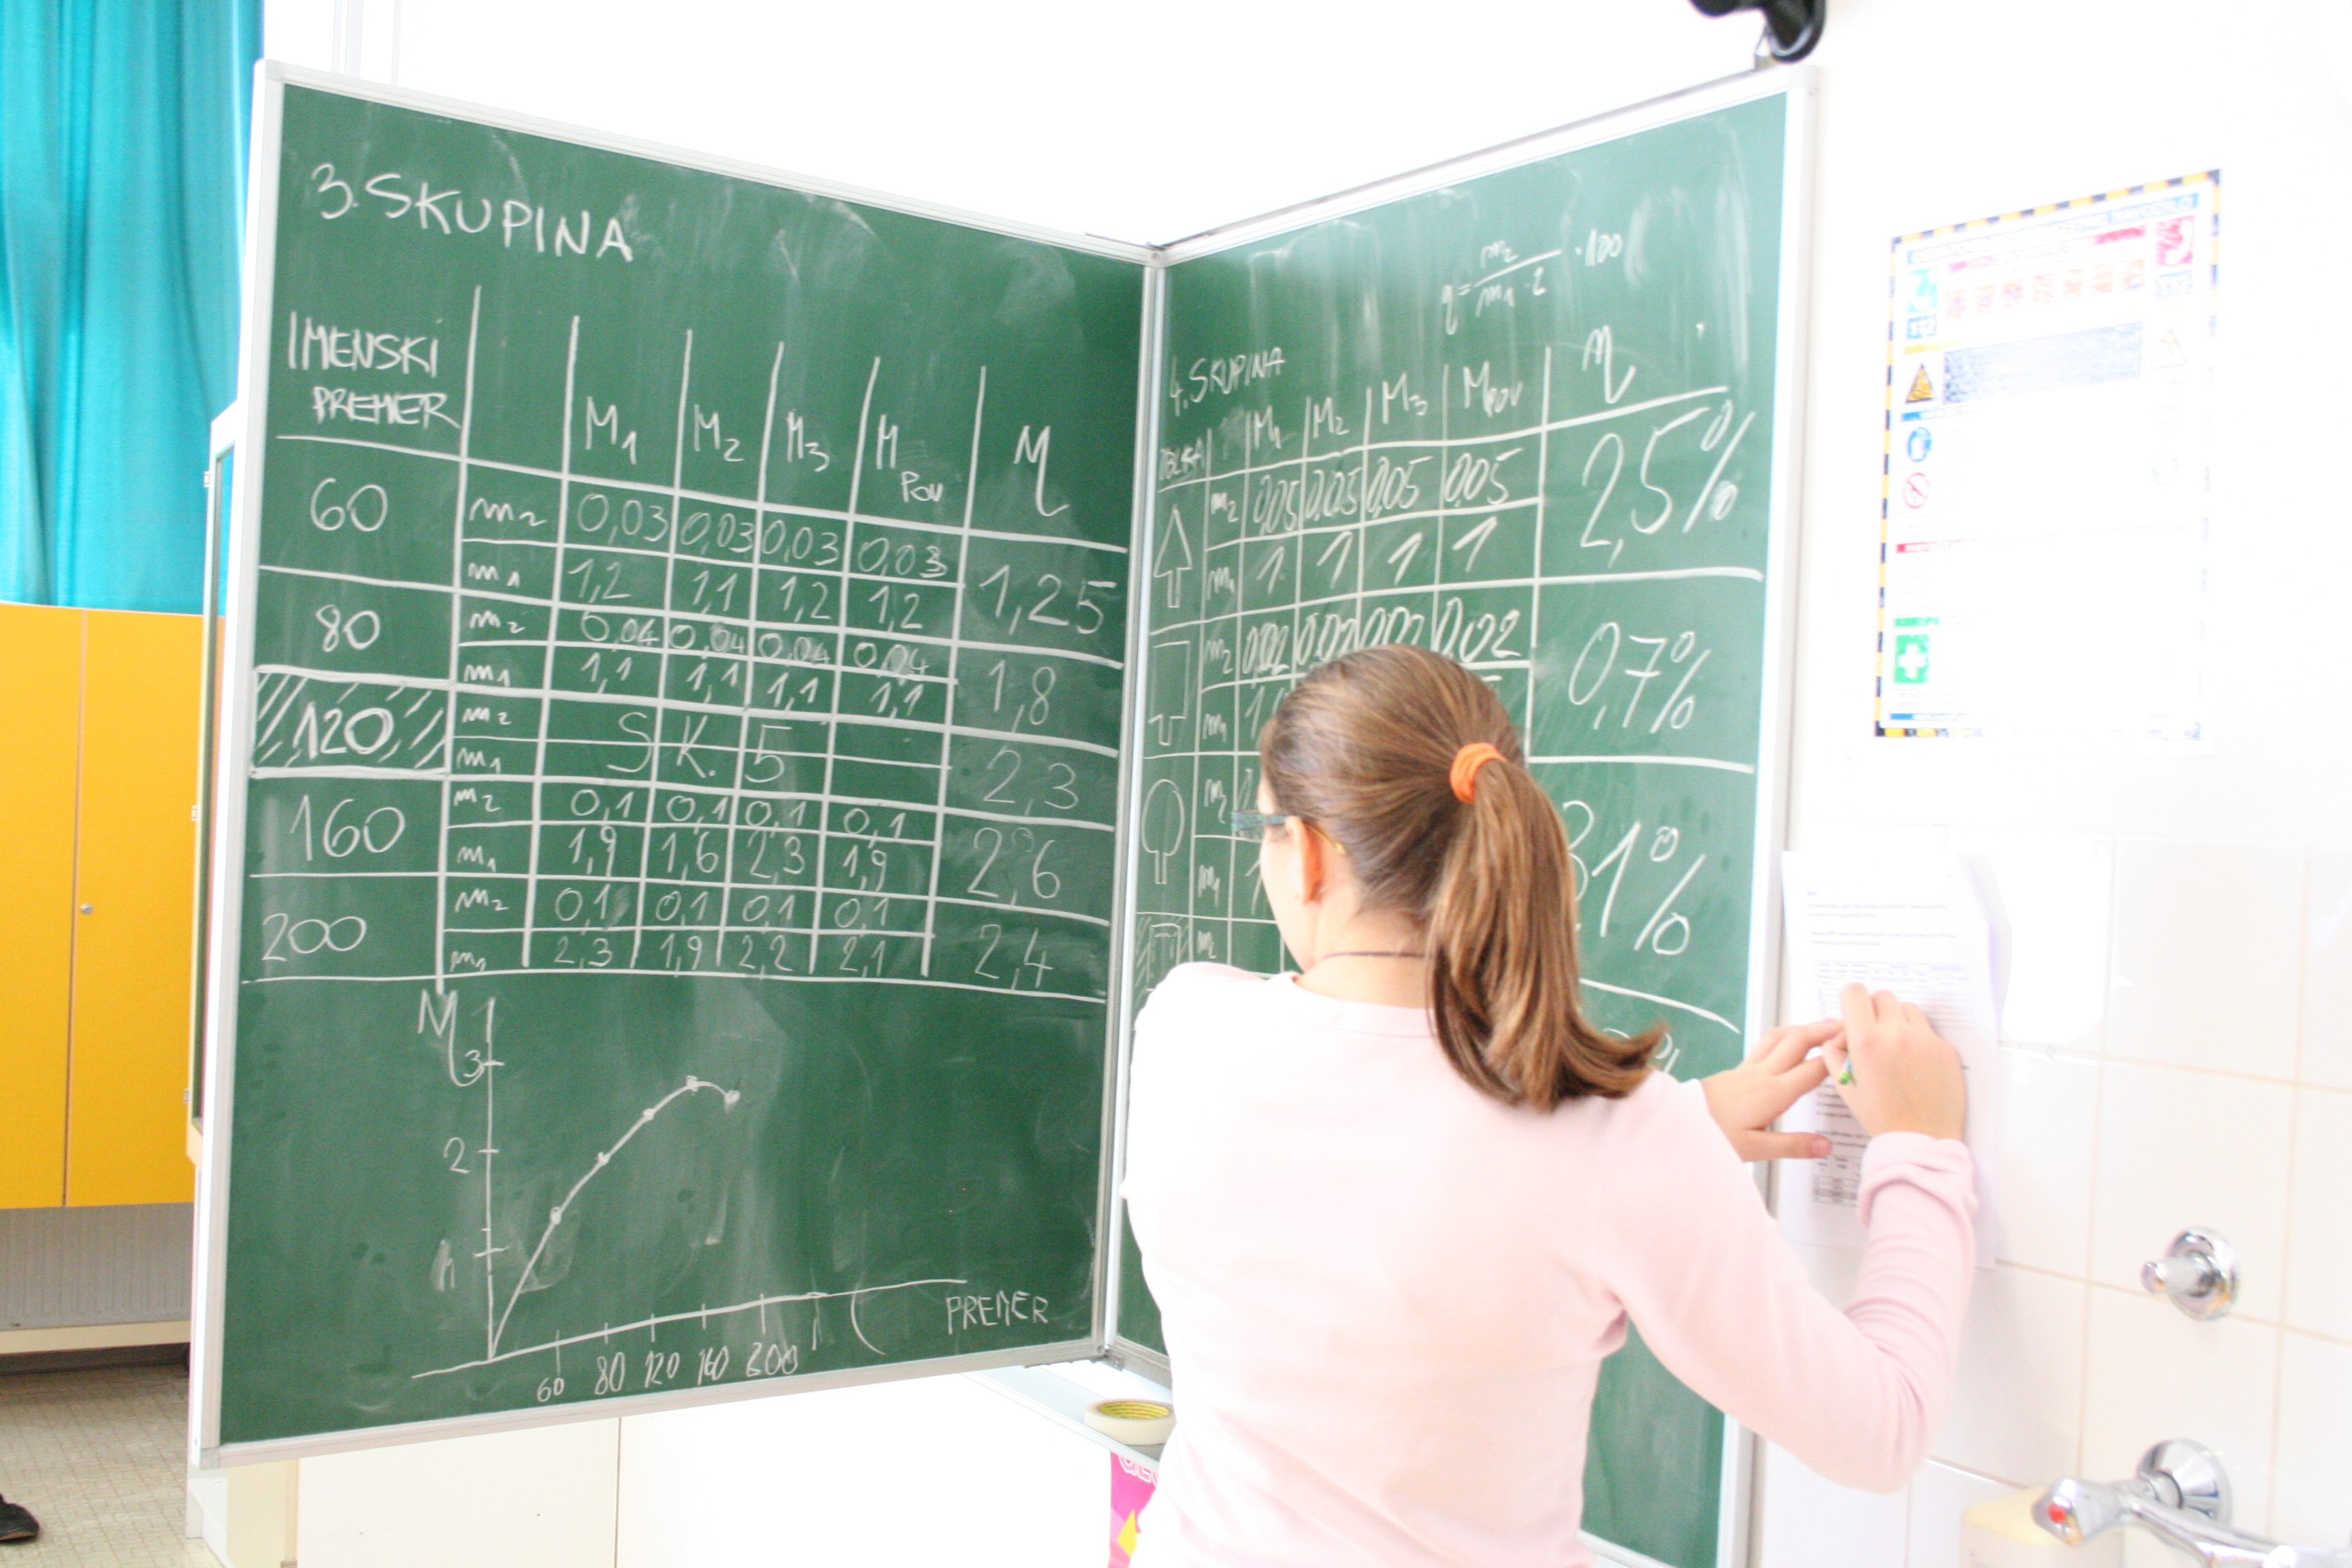 3. SKUPINA
IMENSKI
PREMER
M1 M2 M3 M POV η
60 m2 0,03 0,03 0,03 0,03
m1 1,2 1,1 1,2 1,2 1,25
80 m2 0,04 0,04 0,04 0,04
m1 1,1 1,1 1,1 1,1 1,8
120 m2 SK. 5
m1 2,3
160 m2 0,1 0,1 0,1 0,1
m1 1,9 1,6 2,3 1,9 2,6
200 m2 0,1 0,1 0,1 0,1
m1 2,3 1,9 2,2 2,1 2,4
η
3
2
1
60 80 120 160 200
PREMER
η = m2 / m1 · 2 · 100
4. SKUPINA
M1 M2 M3 MPOV η
m2 0,05 0,05 0,05 0,05 2,5%
m1 1 1 1 1
m2 0,02 0,02 0,02 0,02 0,7%
m1
m2
m1 1%
m2